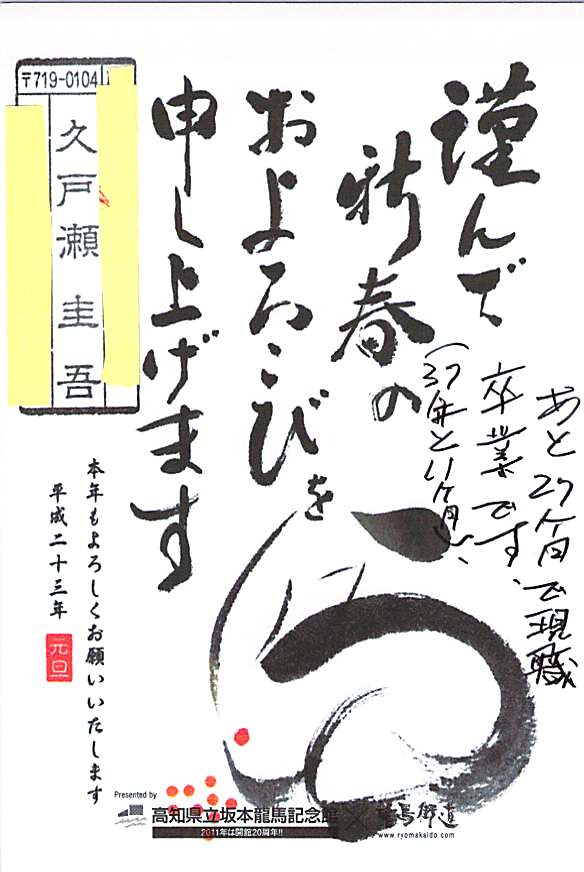 謹んで
新春の
およろこびを
申し上げます
あと27ヶ月で現職
卒業です、
(37年と11ヶ月)、
〒719-0104
久戸瀬 圭吾
本年もよろしくお願いいたします
平成二十三年
元旦
Presented by
高知県立坂本龍馬記念館
2011年は開館20周年!!
www.ryomakaido.com